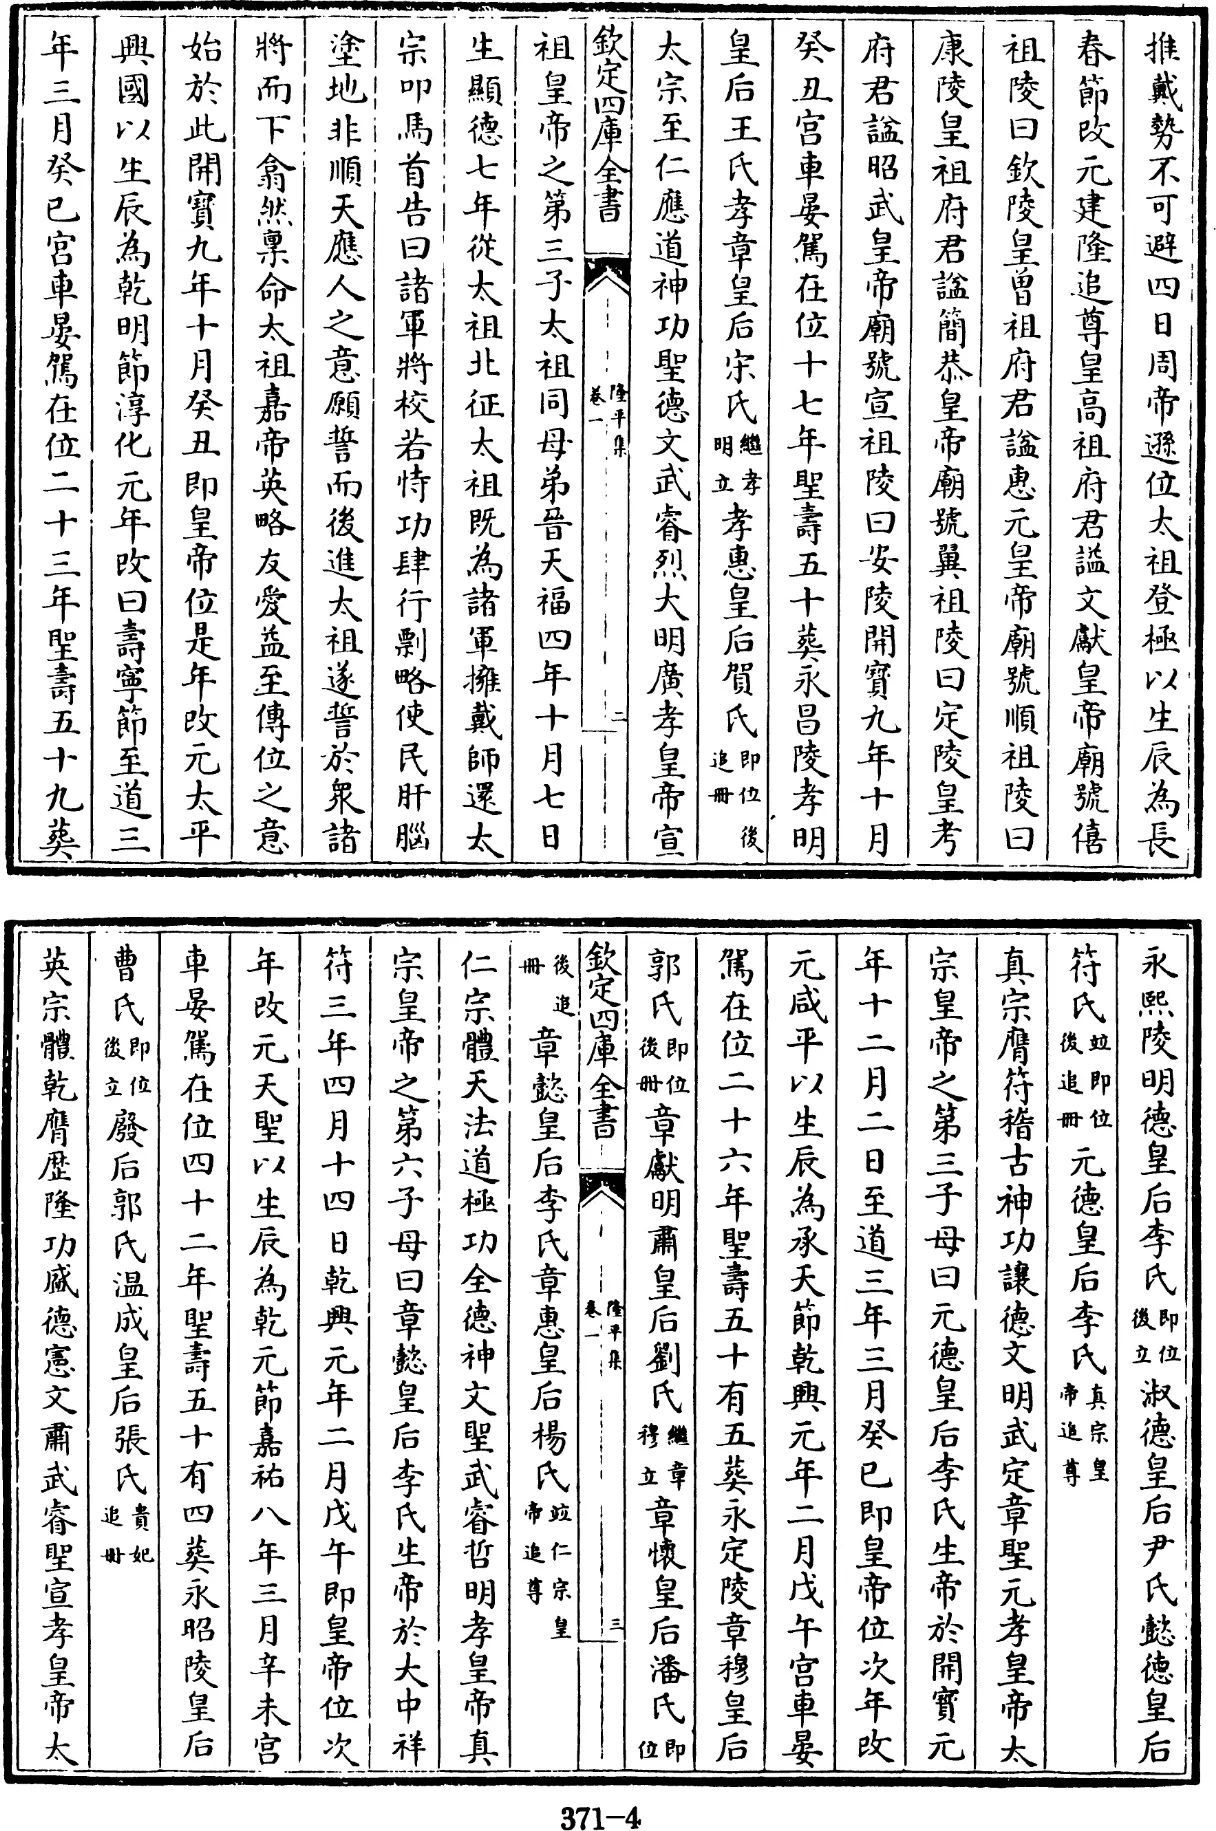 推戴勢不可避四日周帝遜位太祖登極以生辰為長
春節改元建隆追尊皇高祖府君謚文獻皇帝廟號僖
祖陵曰欽陵皇曾祖府君謚惠元皇帝廟號順祖陵曰
康陵皇祖府君謚簡恭皇帝廟號翼祖陵曰定陵皇考
府君謚昭武皇帝廟號宣祖陵曰安陵開寶九年十月
癸丑宮車晏駕在位十七年聖壽五十葬永昌陵孝明
皇后王氏孝章皇后宋氏繼孝明立孝惠皇后賀氏即位後追冊
太宗至仁應道神功聖德文武睿烈大明廣孝皇帝宣
欽定四庫全書 隆平集卷一 二
祖皇帝之第三子太祖同母弟晉天福四年十月七日
生顯德七年從太祖北征太祖既為諸軍擁戴師還太
宗叩馬首告曰諸軍將校若恃功肆行剽略使民肝腦
塗地非順天應人之意願誓而後進太祖遂誓於衆諸
將而下翕然稟命太祖嘉帝英略友愛益至傳位之意
始於此開寶九年十月癸丑即皇帝位是年改元太平
興國以生辰為乾明節淳化元年改曰壽寧節至道三
年三月癸巳宮車晏駕在位二十三年聖壽五十九葬
永熙陵明德皇后李氏即位後立淑德皇后尹氏懿德皇后
符氏竝即位後追冊元德皇后李氏真宗皇帝追尊
真宗膺符稽古神功讓德文明武定章聖元孝皇帝太
宗皇帝之第三子母曰元德皇后李氏生帝於開寶元
年十二月二日至道三年三月癸巳即皇帝位次年改
元咸平以生辰為承天節乾興元年二月戊午宮車晏
駕在位二十六年聖壽五十有五葬永定陵章穆皇后
郭氏即位後冊章獻明肅皇后劉氏繼章穆立章懷皇后潘氏即位
欽定四庫全書 隆平集卷一 三
後追冊章懿皇后李氏章惠皇后楊氏竝仁宗皇帝追尊
仁宗體天法道極功全德神文聖武睿哲明孝皇帝真
宗皇帝之第六子母曰章懿皇后李氏生帝於大中祥
符三年四月十四日乾興元年二月戊午即皇帝位次
年改元天聖以生辰為乾元節嘉祐八年三月辛未宮
車晏駕在位四十二年聖壽五十有四葬永昭陵皇后
曹氏即位後立廢后郭氏温成皇后張氏貴妃追冊
英宗體乾膺歷隆功盛德憲文肅武睿聖宣孝皇帝太
371-4